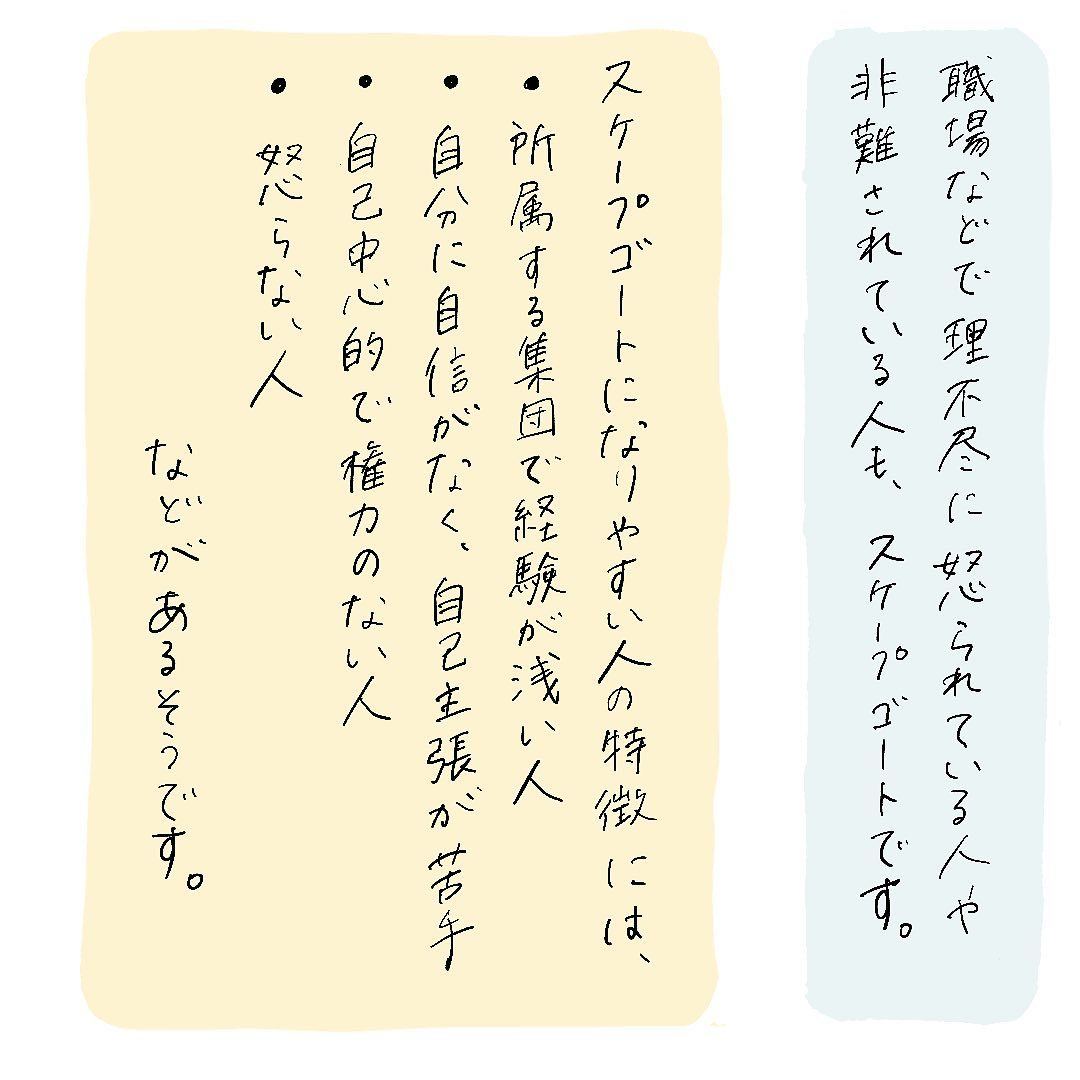 職場などで理不尽に怒られている人や
非難されている人も、スケープゴートです。
スケープゴートになりやすい人の特徴には、
• 所属する集団で経験が浅い人
• 自分に自信がなく、自己主張が苦手
• 自己中心的で権力のない人
• 怒らない人
などがあるそうです。